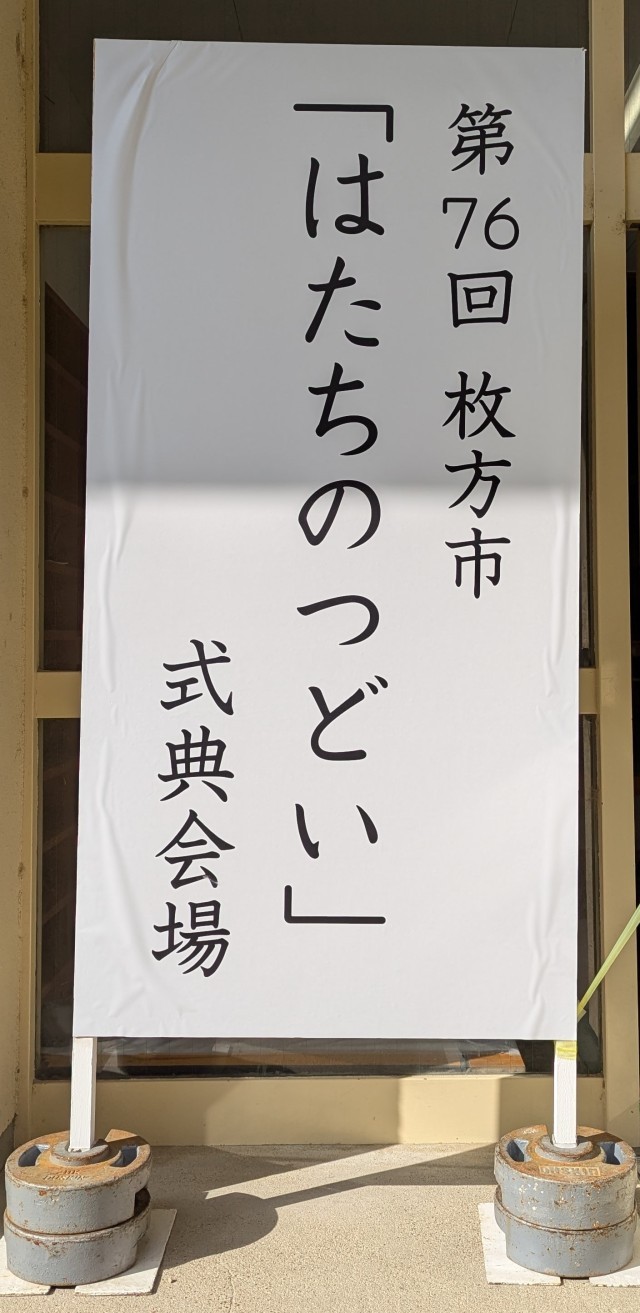 第76回 枚方市
「はたちのつどい」
式典会場